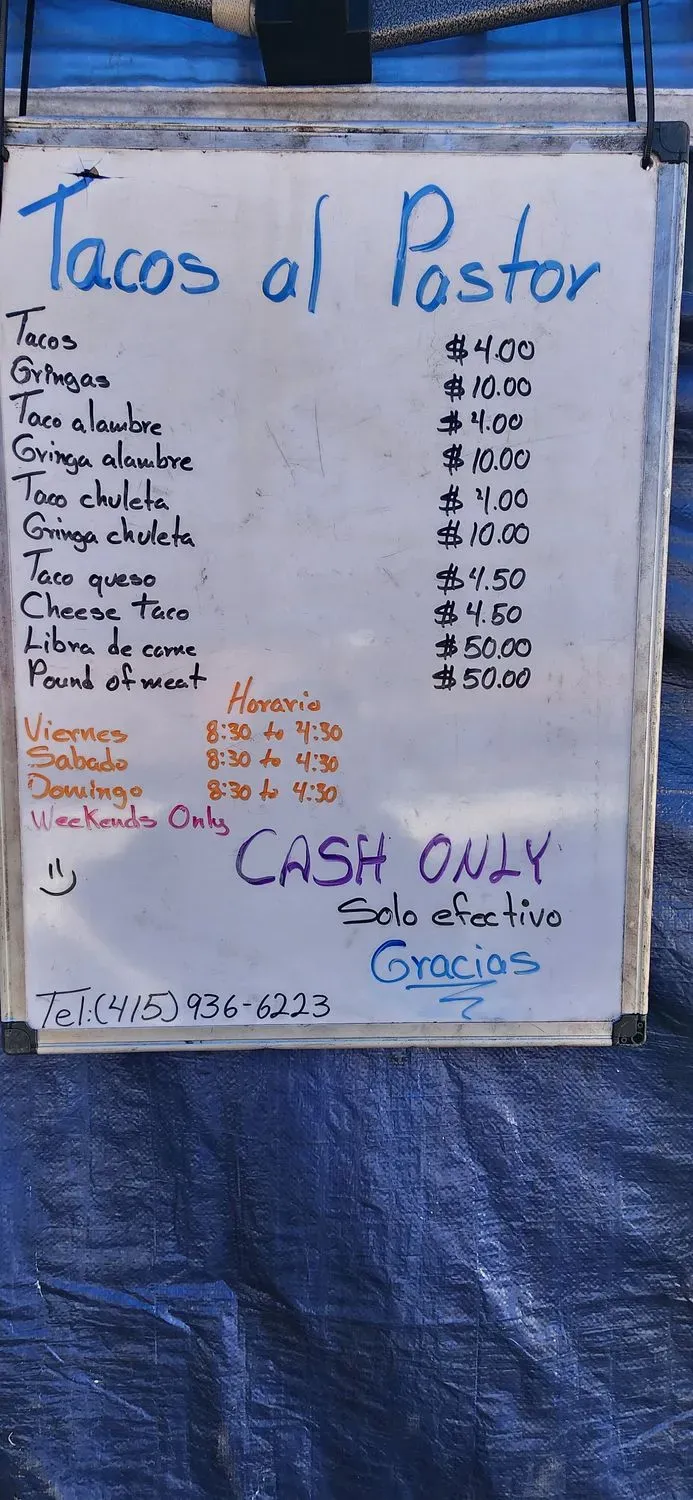 Tacos al Pastor
Tacos $4.00
Gringas $10.00
Taco alambre $4.00
Gringa alambre $10.00
Taco chuleta $4.00
Gringa chuleta $10.00
Taco queso $4.50
Cheese taco $4.50
Libra de carne $50.00
Pound of meat $50.00
Horario
Viernes 8:30 to 4:30
Sabado 8:30 to 4:30
Domingo 8:30 to 4:30
Weekends Only
CASH ONLY
Solo efectivo
Gracias
Tel:(415)936-6223